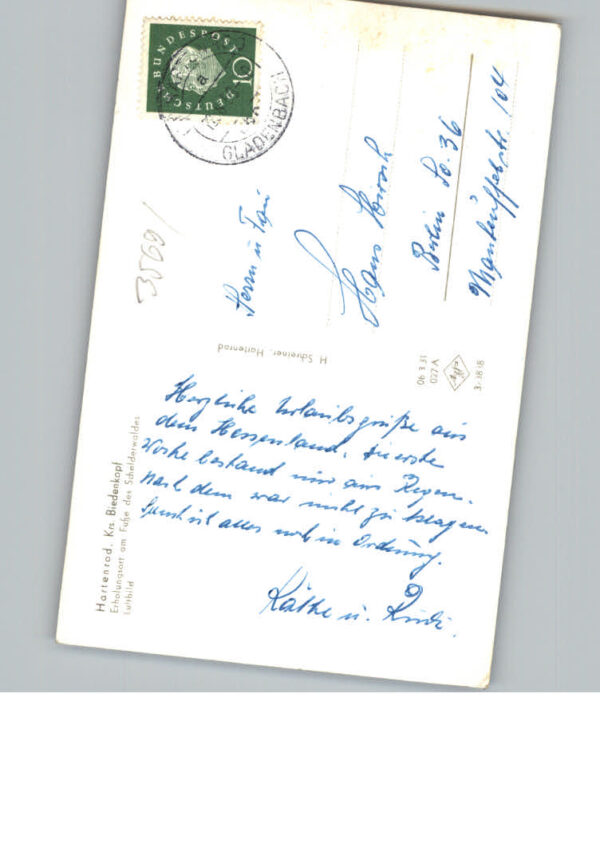 DEUTSCHE BUNDESPOST
10
GLADENBACH
3569/
Herrn u. Frau
Hans
Berlin So. 36
Manteuffelstr. 104
H. Schreiner, Hartenrod
06 3 31
027 A
3-1818
Herzliche Urlaubsgrüße aus
dem Hessenland. Die erste
Woche bestand nur aus Regen.
Nach dem war nicht zu klagen.
Sonst ist alles noch in Ordnung.
Käthe u. Rudi.
Hartenrod, Krs. Biedenkopf
Erholungsort am Fuße des Schelderwaldes
Luftbild